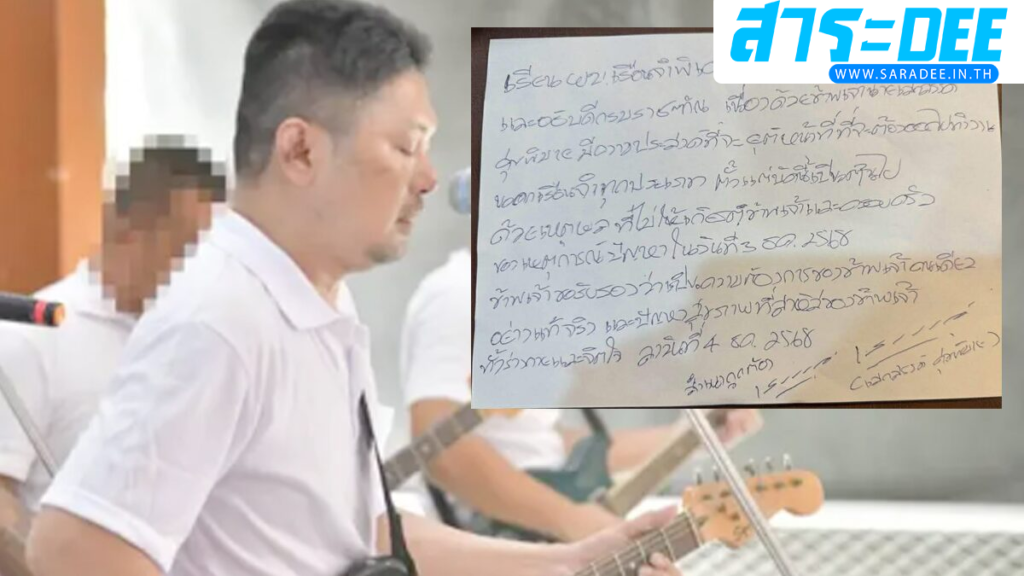 สาระDEE
WWW.SARADEE.IN.TH
เรียน ผบ.เรือนจำพิเ
และอธิบดีกรมราชทัณฑ์ เนื่องด้วยข้าพเจ้านาย
มีความประสงค์ที่จะยุติหน้าที่ที่จะต้องออกไปทำงาน
นอกเรือนจำทุกประเภท ตั้งแต่บัดนี้เป็นต้นไป
ด้วยเหตุผล ที่ไม่ให้เกิด ข้าพเจ้าและครอบครัว
ของเหตุการณ์ปัญหาในวันที่ 3 ธค. 2568
ข้าพเจ้าขอรับรองว่าเป็นความต้องการของข้าพเจ้าคนเดียว
อย่างแท้จริง และปัญหาสุขภาพที่ ของข้าพเจ้า
ทั้งร่างกายและจิตใจ ลงวันที่ 4 ธค. 2568